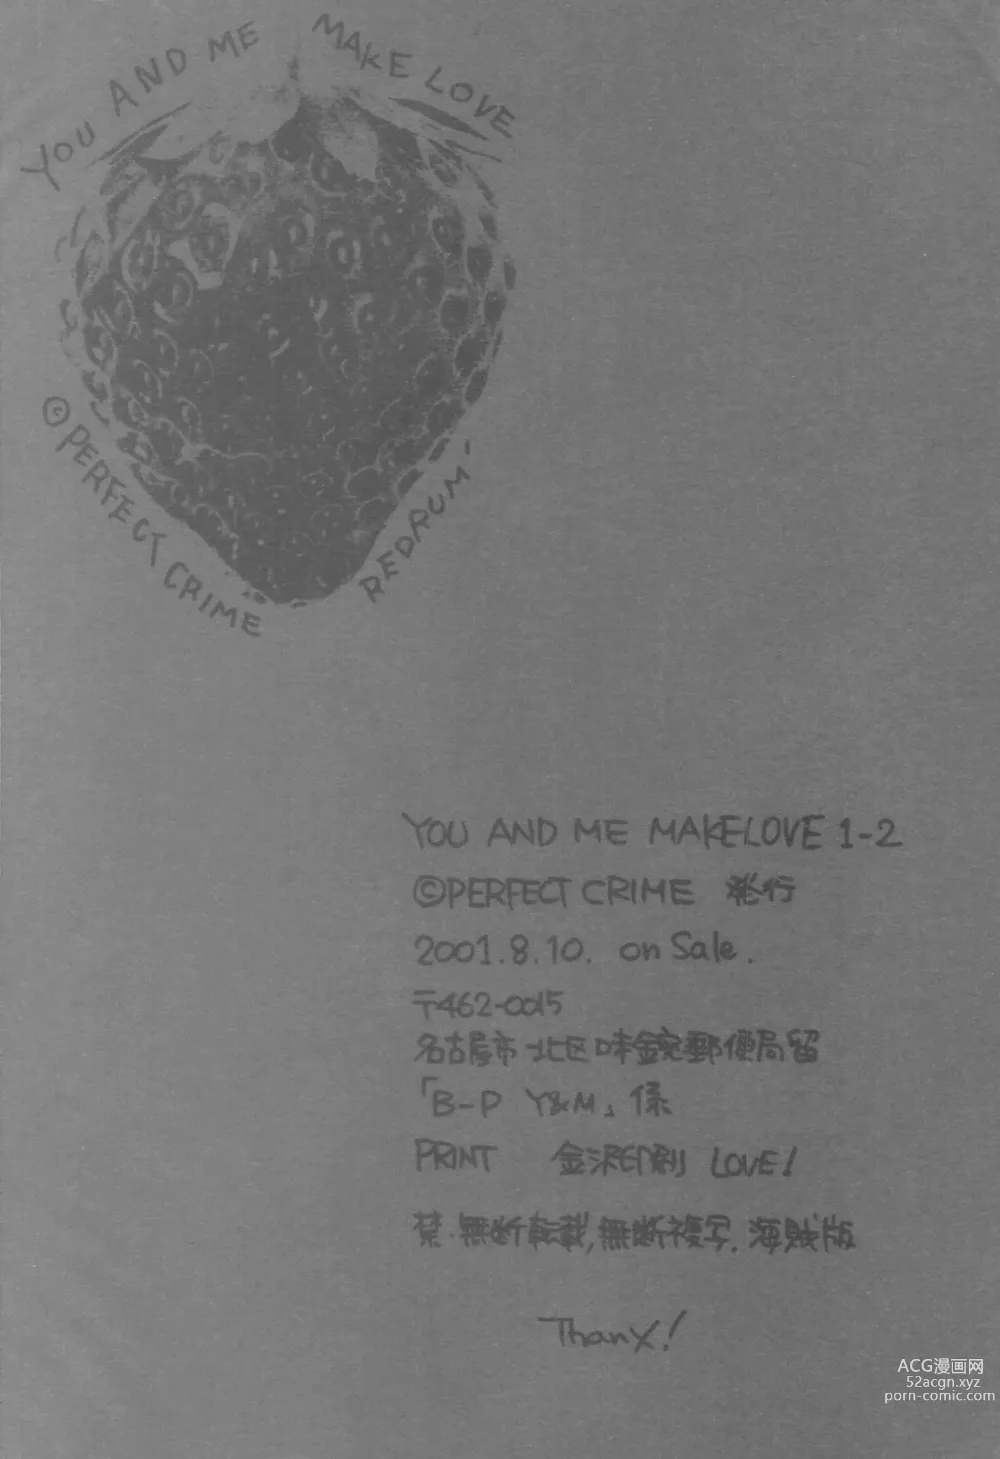 YOU AND ME MAKE LOVE
©PERFECT CRIME
REDRUM'
YOU AND ME MAKELOVE 1-2
©PERFECT CRIME 発行
2001.8.10. on Sale.
〒462-0015
名古屋市北区味鋺郵便局留
「B-P Y&M」係
PRINT 金沢印刷 LOVE!
禁・無断転載,無断複写.海賊版
ThanX!
ACG漫画网
52acgn.xyz
porn-comic.com